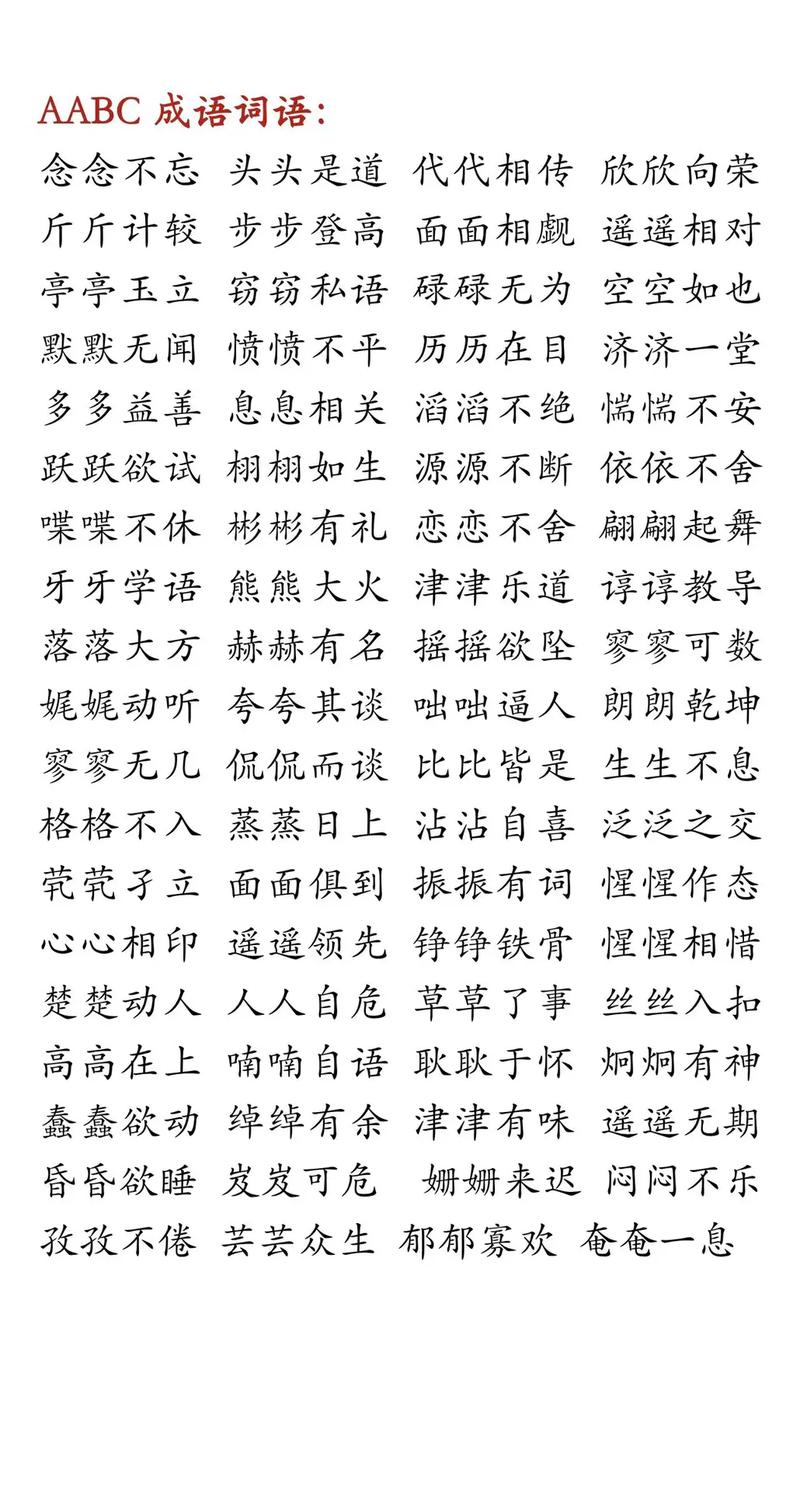 AABC 成语词语：
念念不忘 头头是道 代代相传 欣欣向荣
斤斤计较 步步登高 面面相觑 遥遥相对
亭亭玉立 窃窃私语 碌碌无为 空空如也
默默无闻 愤愤不平 历历在目 济济一堂
多多益善 息息相关 滔滔不绝 惴惴不安
跃跃欲试 栩栩如生 源源不断 依依不舍
喋喋不休 彬彬有礼 恋恋不舍 翩翩起舞
牙牙学语 熊熊大火 津津乐道 谆谆教导
落落大方 赫赫有名 摇摇欲坠 寥寥可数
娓娓动听 夸夸其谈 咄咄逼人 朗朗乾坤
寥寥无几 侃侃而谈 比比皆是 生生不息
格格不入 蒸蒸日上 沾沾自喜 泛泛之交
茕茕孑立 面面俱到 振振有词 惺惺作态
心心相印 遥遥领先 铮铮铁骨 惺惺相惜
楚楚动人 人人自危 草草了事 丝丝入扣
高高在上 喃喃自语 耿耿于怀 炯炯有神
蠢蠢欲动 绰绰有余 津津有味 遥遥无期
昏昏欲睡 岌岌可危 姗姗来迟 闷闷不乐
孜孜不倦 芸芸众生 郁郁寡欢 奄奄一息